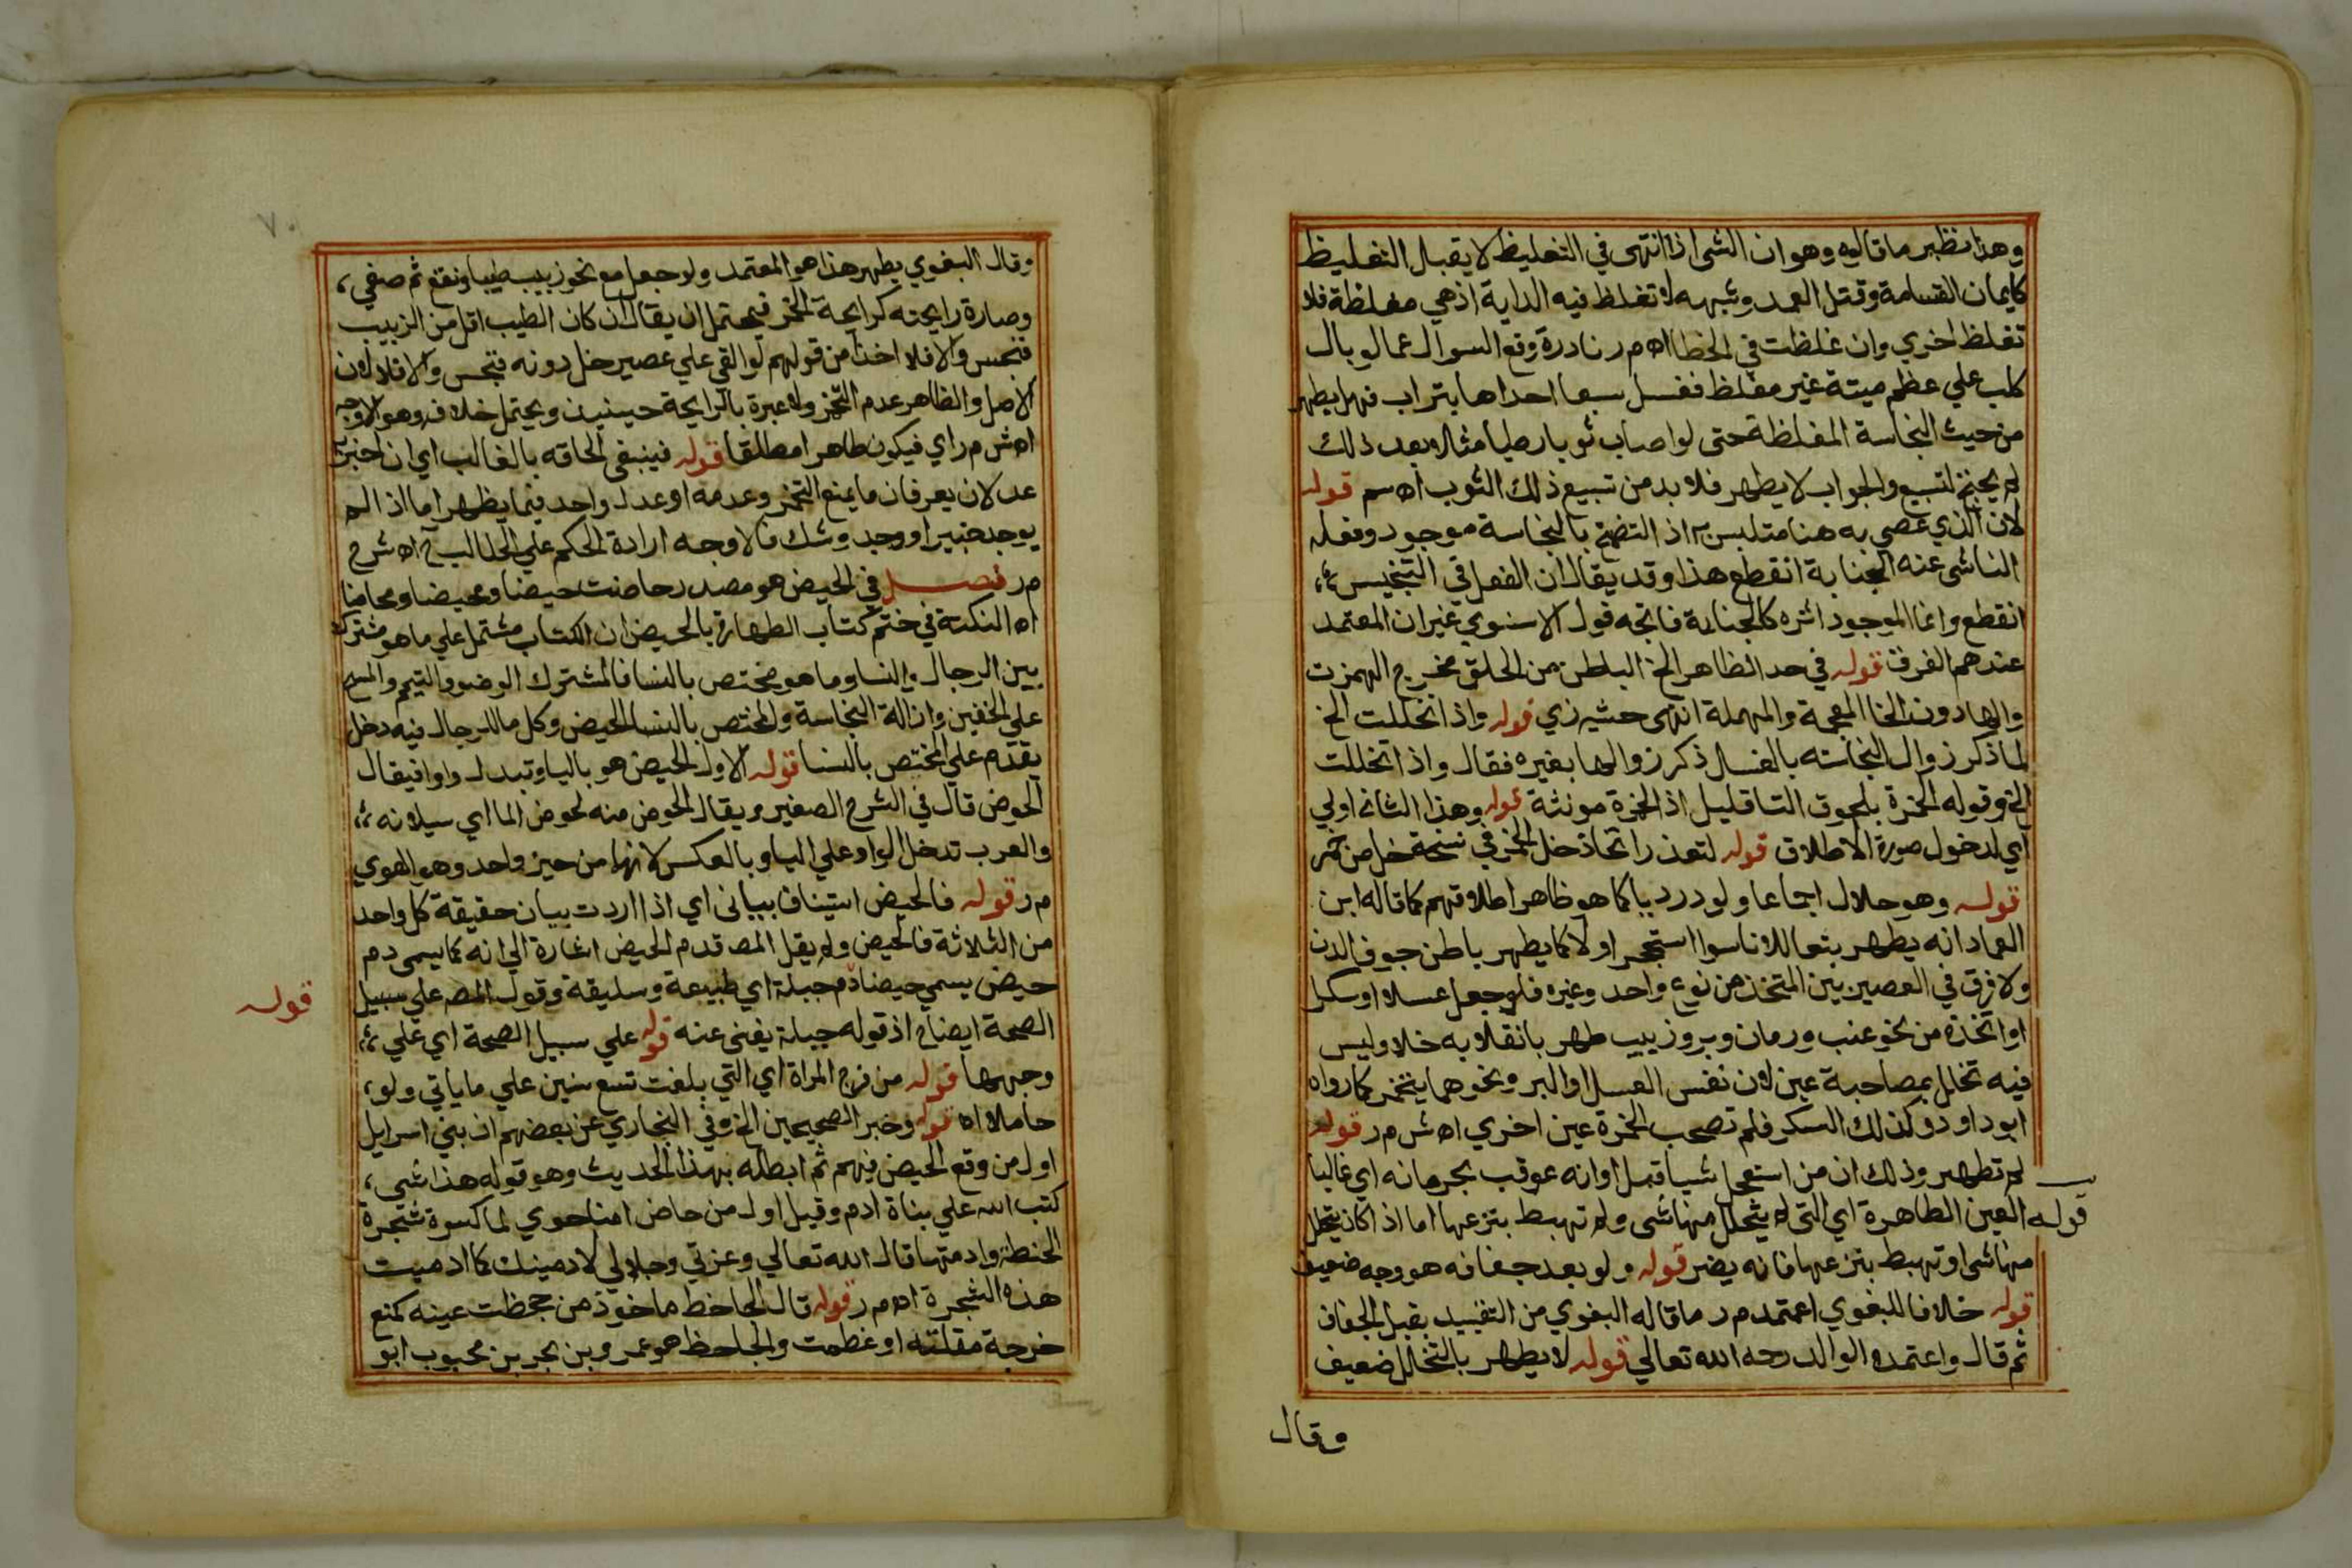 وهذا نظير ما قاليه وهو ان الشي اذا انتهى في التغليظ لا يقبل التغليظ
كايمان القسامة وقتل العمد وشبهه لا تغلظ فيه الداية اذ هي مغلظة فلا
تغلظ اخري وان غلظت في الخطا اه م ر نادرة وقع السوال عما لو بال
كلب علي عظم ميتة غير مغلظ فغسل سبعا احداها بتراب فهل يطهر
من حيث النجاسة المغلظة حتى لو اصاب ثوبا رطبا مثلا بعد ذلك
لم يحتج لتسبيع والجواب لا يطهر فلا بد من تسبيع ذلك الثوب اه سم قوله
لان الذي عصي به هنا متلبس به اذ التضمخ بالنجاسة موجود وفعله
الناشي عنه الجنابة انقطع هذا وقد يقال ان الفعل في التنجيس
انقطع وانما الموجود اثره كالجنابة فاتجه قول الاسنوي غير ان المعتمد
عندهم الفرق قوله في حد الظاهر الخ الباطن من الحلق مخرج الهمزت
والها دون الخا المعجمة والمهملة انتهى حشيه زي قوله واذا تخللت الخ
لما ذكر زوال النجاسته بالغسل ذكر زوالها بغيره فقال واذا تخللت
الخ وقوله الخمرة بلحوق التا قليل اذ الخمرة مونثة قوله وهذا الثاني اولي
اي لدخول صورة الاطلاق قوله لتعذر اتخاذ خل الخمر في نسخة خل من خمر
قوله وهو حلال اجماعا ولو درديا كما هو ظاهر اطلاقهم كما قاله ابن
العماد انه يطهر بتعا للاناسوا استحجر اولا كما يطهر باطن جوف الدن
ولا فرق في العصير بين المتخذ من نوع واحد وغيره فلو جعل عسلا او سكرا
او اتخذه من نحو عنب ورمان وبر وزبيب طهر بانقلابه خلا وليس
فيه تخلل بمصاحبة عين لان نفس العسل او البر ونحوهما يتخمر كما رواه
ابو داود وكذلك السكر فلم تصحب الخمرة عين اخري اه ش م ر قوله
لم تطهر وذلك ان من استعجل شيا قبل اوانه عوقب بحرمانه اي غالبا
قوله العين الطاهرة اي التي لم يتحلل منها شي ولم تهبط بنزعها اما اذا كان يتحلل
منها شي او تهبط بنزعها فانه يضر قوله ولو بعد جفافه هو وجه ضعيف
قوله خلافا للبغوي اعتمد م ر ما قاله البغوي من التقييد بقبل الجفاف
ثم قال واعتمده الوالد رحمه الله تعالي قوله لا يطهر بالتخلل ضعيف
وقال
وقال البغوي يطهر هذا هو المعتمد ولو جعل مع نحو زبيب طيبا ونقع ثم صفي
وصارة رايحته كرايحة الخمر فيحتمل ان يقال ان كان الطيب اقل من الزبيب
فنجس والا فلا اخذا من قولهم لو القي علي عصير خل دونه فنجس والا فلا لان
الاصل والظاهر عدم التخمر ولا عبرة بالرايحة حينيذ ويحتمل خلافه وهو الاوجه
اه ش م ر اي فيكون طاهرا مطلقا قوله فينبغي الحاقه بالغالب اي ان اخبر
عدلان يعرفان ما يمنع التخمر وعدمه او عدل واحد فيما يظهر اما اذا لم
يوجد خبير او وجد وشك فالاوجه ارادة الحكم علي الغالب ح اه شرح
م ر فصل في الحيض هو مصدر حاضت حيضا ومحيضا ومحاضا
اه النكتة في ختم كتاب الطهارة بالحيض ان الكتاب مشتمل علي ما هو مشترك
بين الرجال والنسا وما هو مختص بالنسا فالمشترك الوضو والتيمم والمسح
علي الخفين وازالة النجاسة والمختص بالنسا الحيض وكل ما للرجال فيه دخل
يقدم علي المختص بالنسا قوله الاول الحيض هو باليا وتبدل واوا فيقال
الحوض قال في الشرح الصغير ويقال الحوض منه لحوض الما اي سيلانه
والعرب تدخل الواو علي اليا وبالعكس لانهما من حيز واحد وهو الهوي
م ر قوله فالحيض استيناف بياني اي اذا اردت بيان حقيقة كل واحد
من الثلاثة فالحيض ولم يقل المصـ قدم الحيض اشارة الي انه كما يسمى دم
حيض يسمي حيضا دم جبلة اي طبيعة وسليقة وقول المصـ علي سبيل
قوله
الصحة ايضاح اذ قوله جبلة يغني عنه قوله علي سبيل الصحة اي علي
وجهها قوله من فرج المراة اي التي بلغت تسع سنين علي ما ياتي ولو
حاملا اه قوله وخبر الصحيحين الخ وفي البخاري عن بعضهم ان بني اسرايل
اول من وقع الحيض فيهم ثم ابطله بهذا الحديث وهو قوله هذا شي
كتب الله علي بناة ادم وقيل اول من حاض امنا حوي لما كسرة شجرة
الحنطة وادمتها قال الله تعالي وعزتي وجلالي لادمينك كما ادميت
هذه الشجرة اه م ر قوله قال الجاحظ ماخوذ من جحظت عينه كمنع
خرجة مقلته او عظمت والجاحظ هو عمرو بن بحر بن محبوب ابو